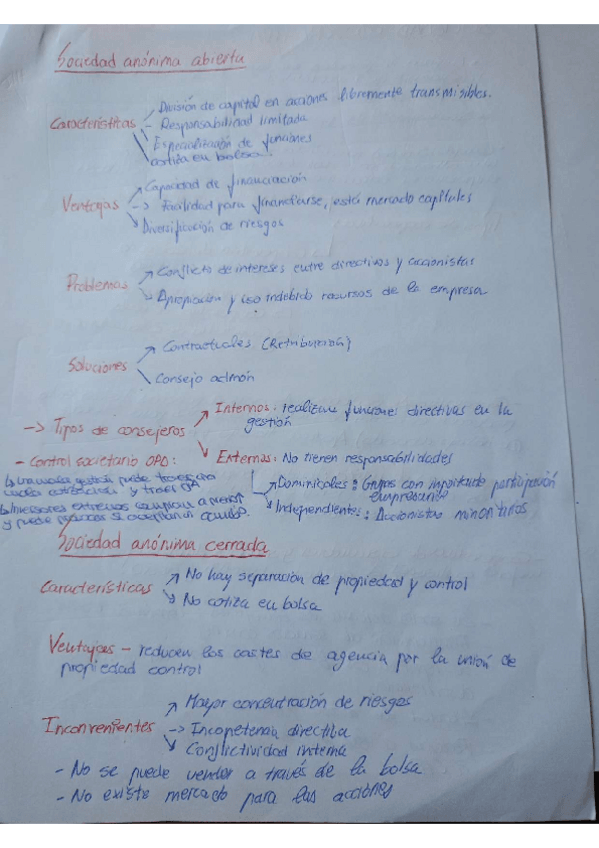 Sociedad anónima abierta
División de capital en acciones libremente transmisibles.
Características – Responsabilidad limitada
Especialización de funciones
cotida en bolsa.
Capacidad de financiación
Ventajas -> Facilidad para financiarse, está mercado capitales
Diversificación de riesgos
Conflicto de intereses entre directivos y accionistas
Problemas
Apropiación y uso indebido recursos de la empresa
Contractuales (Retribución)
Soluciones
Consejo admón
Internos: realizan funciones directivas en la
gestión
-> Tipos de consejeros
- Control societario OPA:
Externos: No tienen responsabilidades
una mala gestión puede traer
y traer OPA
Dominicales: Grupos con importante participación
empresarial
Inversores externos compran a precio
y puede
Independientes: Accionistas minoritarios
Sociedad anónima cerrada
No hay separación de propiedad y control
Características
No cotiza en bolsa
Ventajas – reducen los costes de agencia por la unión de
propiedad control
Mayor concentración de riesgos
Inconvenientes -> Incopetencia directiva
Conflictividad interna
- No se puede vender a través de la bolsa
- No existe mercado para las acciones